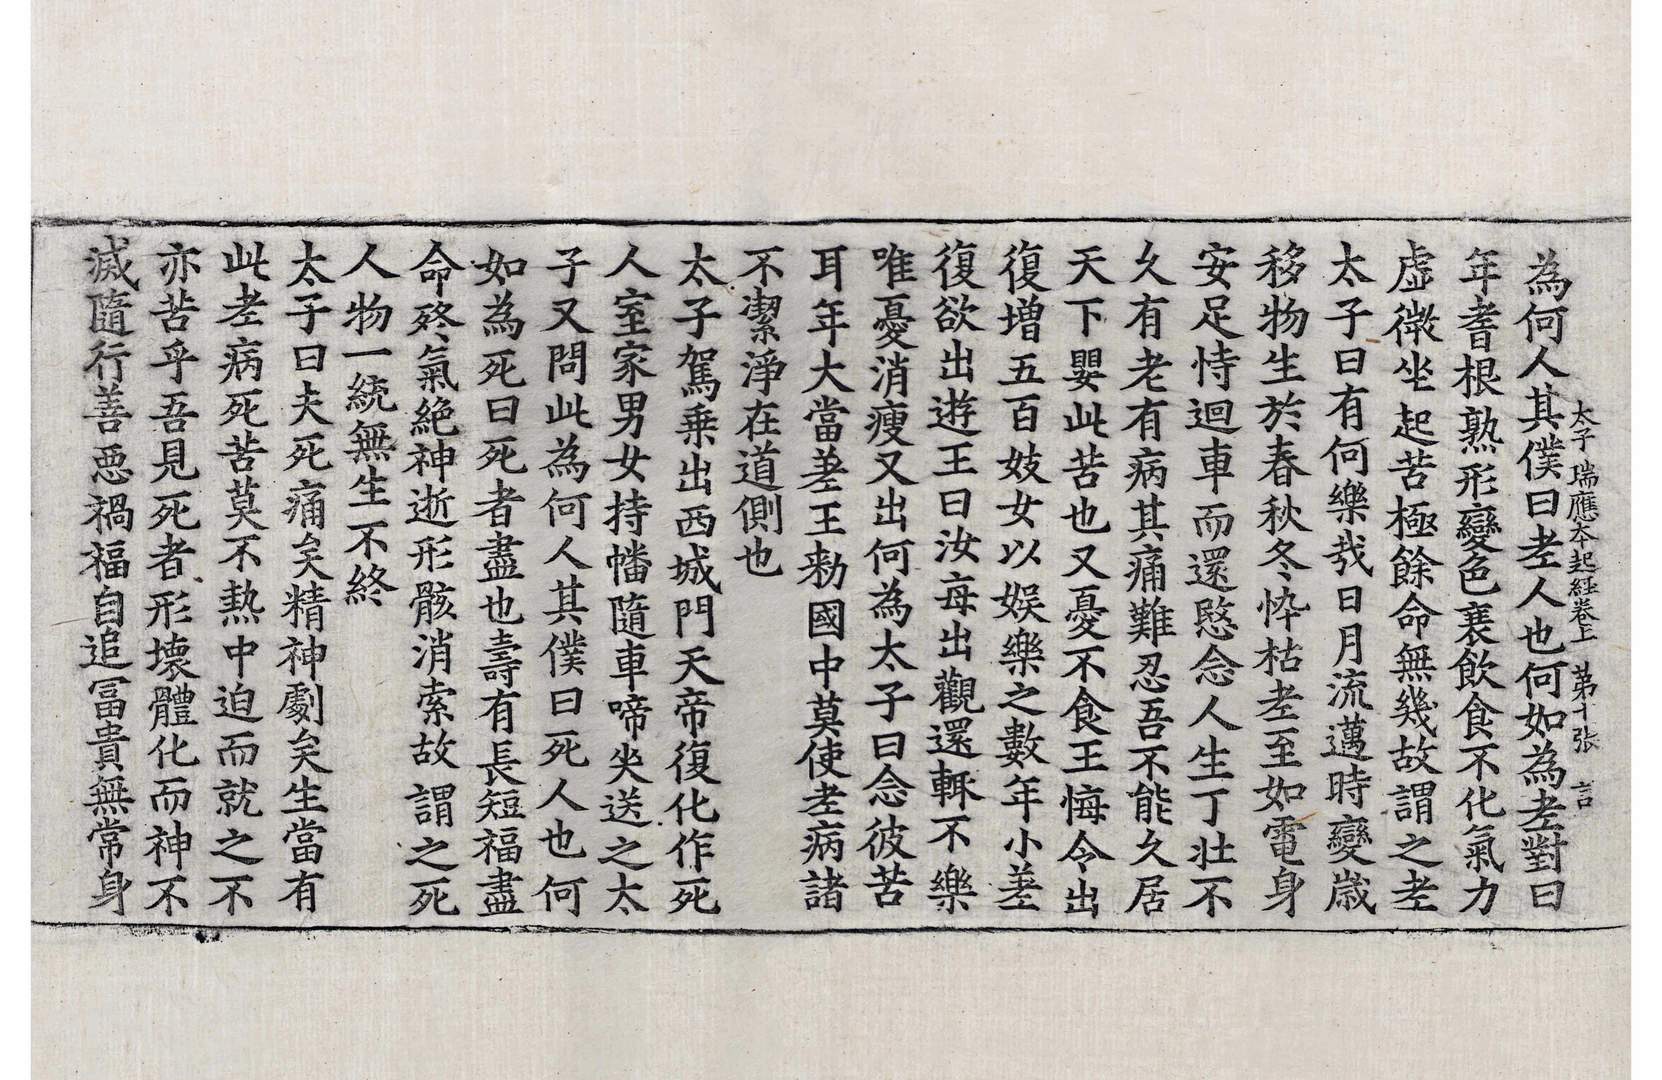 太子瑞應本起經卷上 第十張 言
為何人其僕曰老人也何如為老對曰
年耆根熟形變色衰飲食不化氣力
虛微坐起苦極餘命無幾故謂之老
太子曰有何樂哉日月流邁時變歲
移物生於春秋冬悴枯老至如電身
安足恃迴車而還愍念人生丁壯不
久有老有病其痛難忍吾不能久居
天下嬰此苦也又憂不食王悔令出
復增五百妓女以娛樂之數年小差
復欲出遊王曰汝每出觀還輒不樂
唯憂消瘦又出何為太子曰念彼苦
耳年大當差王勑國中莫使老病諸
不潔淨在道側也
太子駕乗出西城門天帝復化作死
人室家男女持幡隨車啼哭送之太
子又問此為何人其僕曰死人也何
如為死曰死者盡也壽有長短福盡
命終氣絕神逝形骸消索故謂之死
人物一統無生不終
太子曰夫死痛矣精神劇矣生當有
此老病死苦莫不熱中迫而就之不
亦苦乎吾見死者形壞體化而神不
滅隨行善惡禍福自追冨貴無常身